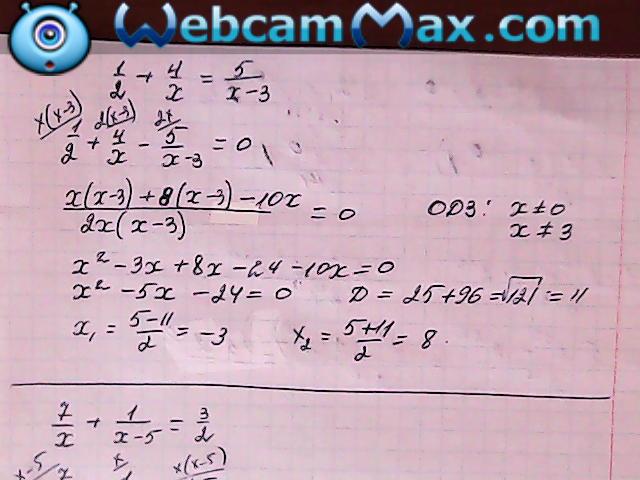 WebcamMax.com
1/2 + 4/x = 5/(x-3)
x(x-3) 2(x-3) 2x
1/2 + 4/x - 5/(x-3) = 0,
(x(x-3) + 8(x-3) - 10x)/(2x(x-3)) = 0 ОДЗ: x ≠ 0
x ≠ 3
x² - 3x + 8x - 24 - 10x = 0
x² - 5x - 24 = 0 D = 25 + 96 = √121 = 11
x₁ = (5-11)/2 = -3 x₂ = (5+11)/2 = 8.
7/x + 1/(x-5) = 3/2
x-5 x x(x-5)